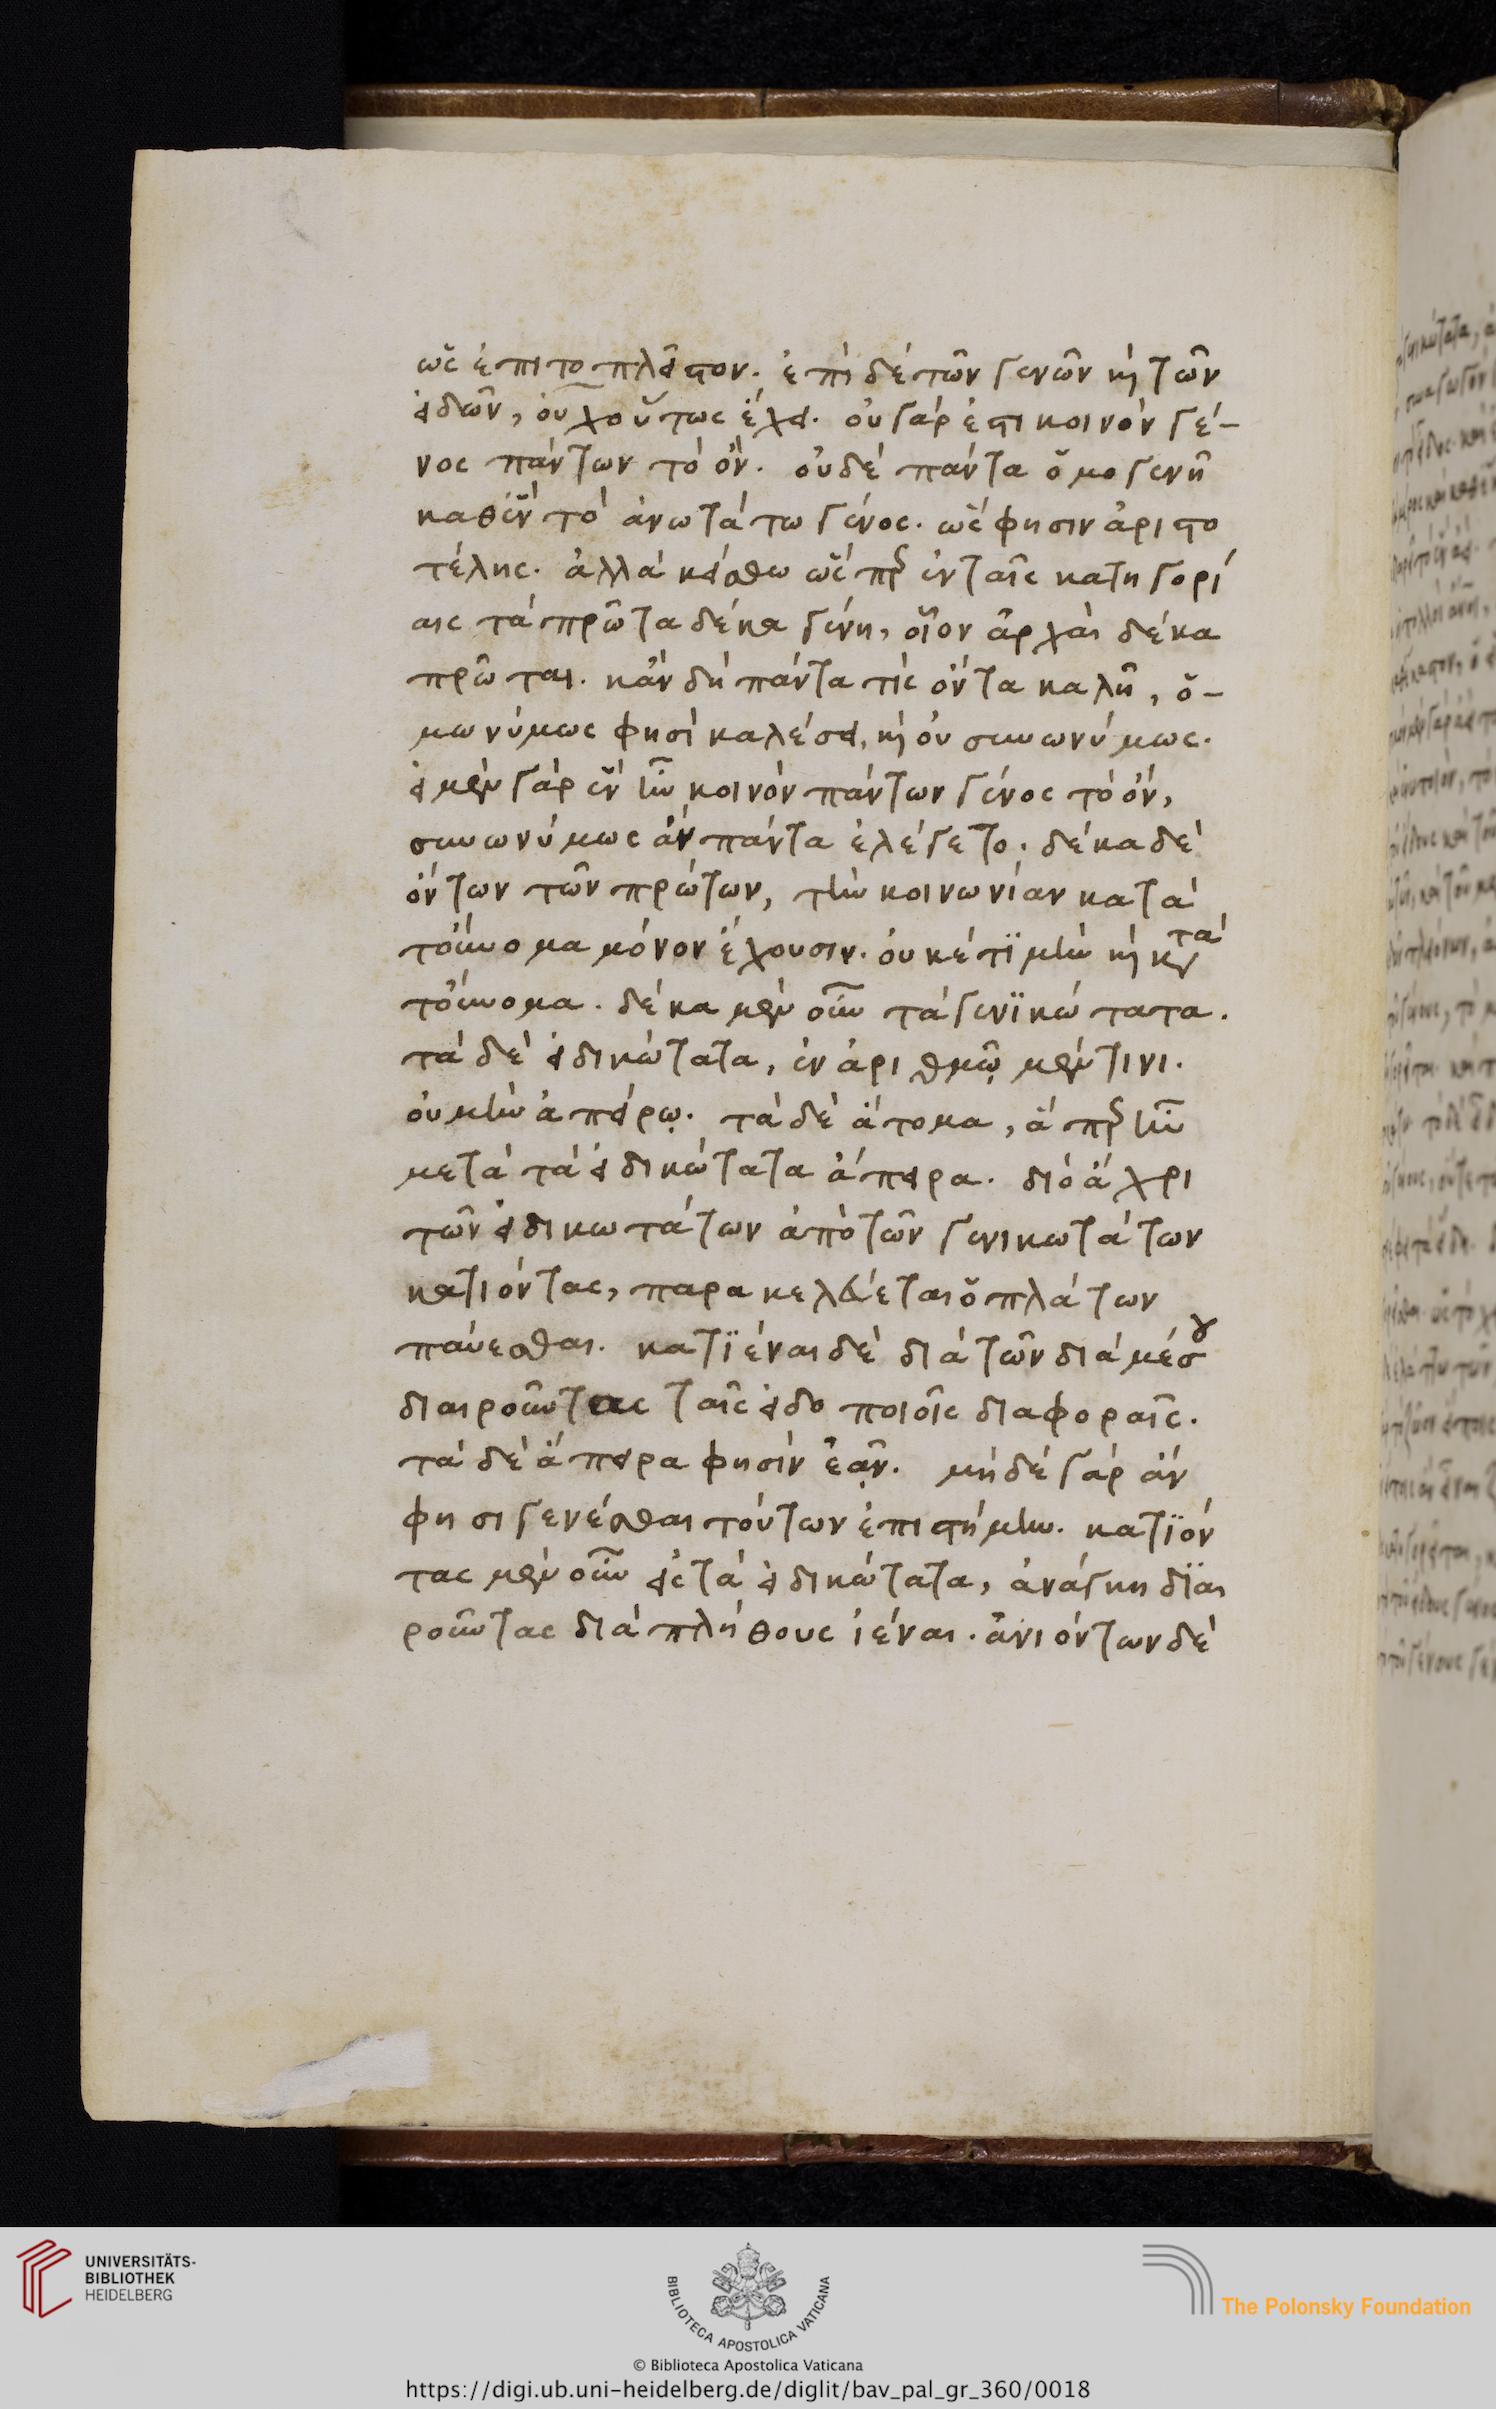 ὡς ἐπιτοπλεῖστον. ἐπὶ δὲ τῶν γενῶν καὶ τῶν
εἰδῶν, οὐχ οὕτως ἔχει. οὐ γάρ ἐστι κοινὸν γέ-
νος πάντων τὸ ὄν. οὐδὲ πάντα ὁμογενῆ
καθ' ἓν τὸ ἀνωτάτω γένος. ὥς φησιν ἀριστο
τέλης. ἀλλὰ κείσθω ὥσπερ ἐν ταῖς κατηγορί
αις τὰ πρῶτα δέκα γένη, οἷον ἀρχαὶ δέκα
πρῶται. κἂν δὴ πάντα τὶς ὄντα καλῆ, ὁ-
μωνύμως φησὶ καλέσει, καὶ οὐ συνωνύμως.
εἰ μὲν γὰρ ἓν ἦν κοινὸν πάντων γένος τὸ ὄν,
συνωνύμως ἂν πάντα ἐλέγετο. δέκα δὲ
ὄντων τῶν πρώτων, τὴν κοινωνίαν κατὰ
τοὔνομα μόνον ἔχουσιν. οὐκέτϊ μὴν καὶ κατὰ
τοὔνομα. δέκα μὲν οὖν τὰ γενϊκώτατα.
τὰ δὲ εἰδικώτατα, ἐν ἀριθμῷ μέν τινι.
οὐ μὴν ἀπείρῳ. τὰ δὲ ἄτομα, ἅπερ ἦν
μετὰ τὰ εἰδικώτατα ἄπειρα. διὸ ἄχρι
τῶν εἰδικωτάτων ἀπὸ τῶν γενικωτάτων
κατιόντας, παρακελεύεται ὁ πλάτων
παύεσθαι. κατϊέναι δὲ διὰ τῶν διὰ μέσου
διαιροῦντας ταῖς εἰδοποιοῖς διαφοραῖς.
τὰ δὲ ἄπειρα φησὶν ἐᾷν. μὴ δὲ γὰρ ἄν
φησι γενέσθαι τούτων ἐπιστήμην. κατϊόν
τας μὲν οὖν εἰς τὰ εἰδικώτατα, ἀνάγκη δϊαι
ροῦντας διὰ πλήθους ἰέναι. ἀνιόντων δὲ
UNIVERSITÄTS-
BIBLIOTHEK
HEIDELBERG
BIBLIOTECA APOSTOLICA VATICANA
The Polonsky Foundation
© Biblioteca Apostolica Vaticana
https://digi.ub.uni-heidelberg.de/diglit/bav_pal_gr_360/0018